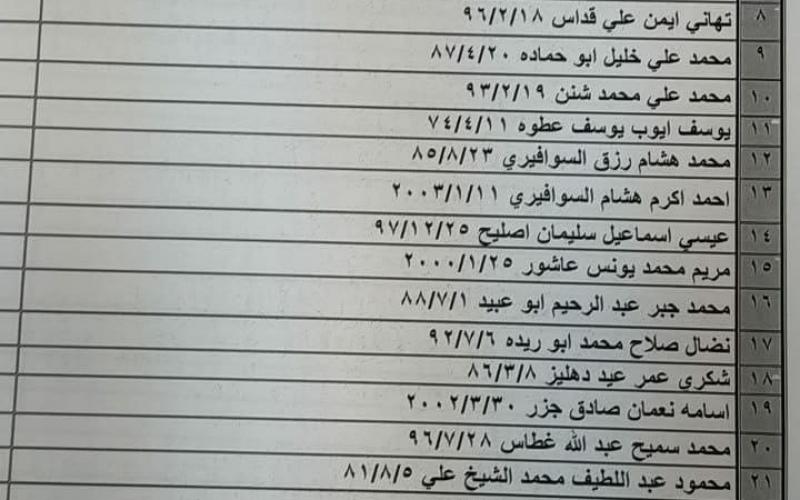 ٨ تهاني ايمن علي قداس ٩٦/٢/١٨
٩ محمد علي خليل ابو حماده ٨٧/٤/٢٠
١٠ محمد علي محمد شنن ٩٣/٢/١٩
١١ يوسف ايوب يوسف عطوه ٧٤/٤/١١
١٢ محمد هشام رزق السوافيري ٨٥/٨/٢٣
١٣ احمد اكرم هشام السوافيري ٢٠٠٣/١/١١
١٤ عيسي اسماعيل سليمان اصليح ٩٧/١٢/٢٥
١٥ مريم محمد يونس عاشور ٢٠٠٠/١/٢٥
١٦ محمد جبر عبد الرحيم ابو عبيد ٨٨/٧/١
١٧ نضال صلاح محمد ابو ريده ٩٢/٧/٦
١٨ شكري عمر عيد دهليز ٨٦/٣/٨
١٩ اسامه نعمان صادق جزر ٢٠٠٢/٣/٣٠
٢٠ محمد سميح عبد الله غطاس ٩٦/٧/٢٨
٢١ محمود عبد اللطيف محمد الشيخ علي ٨١/٨/٥